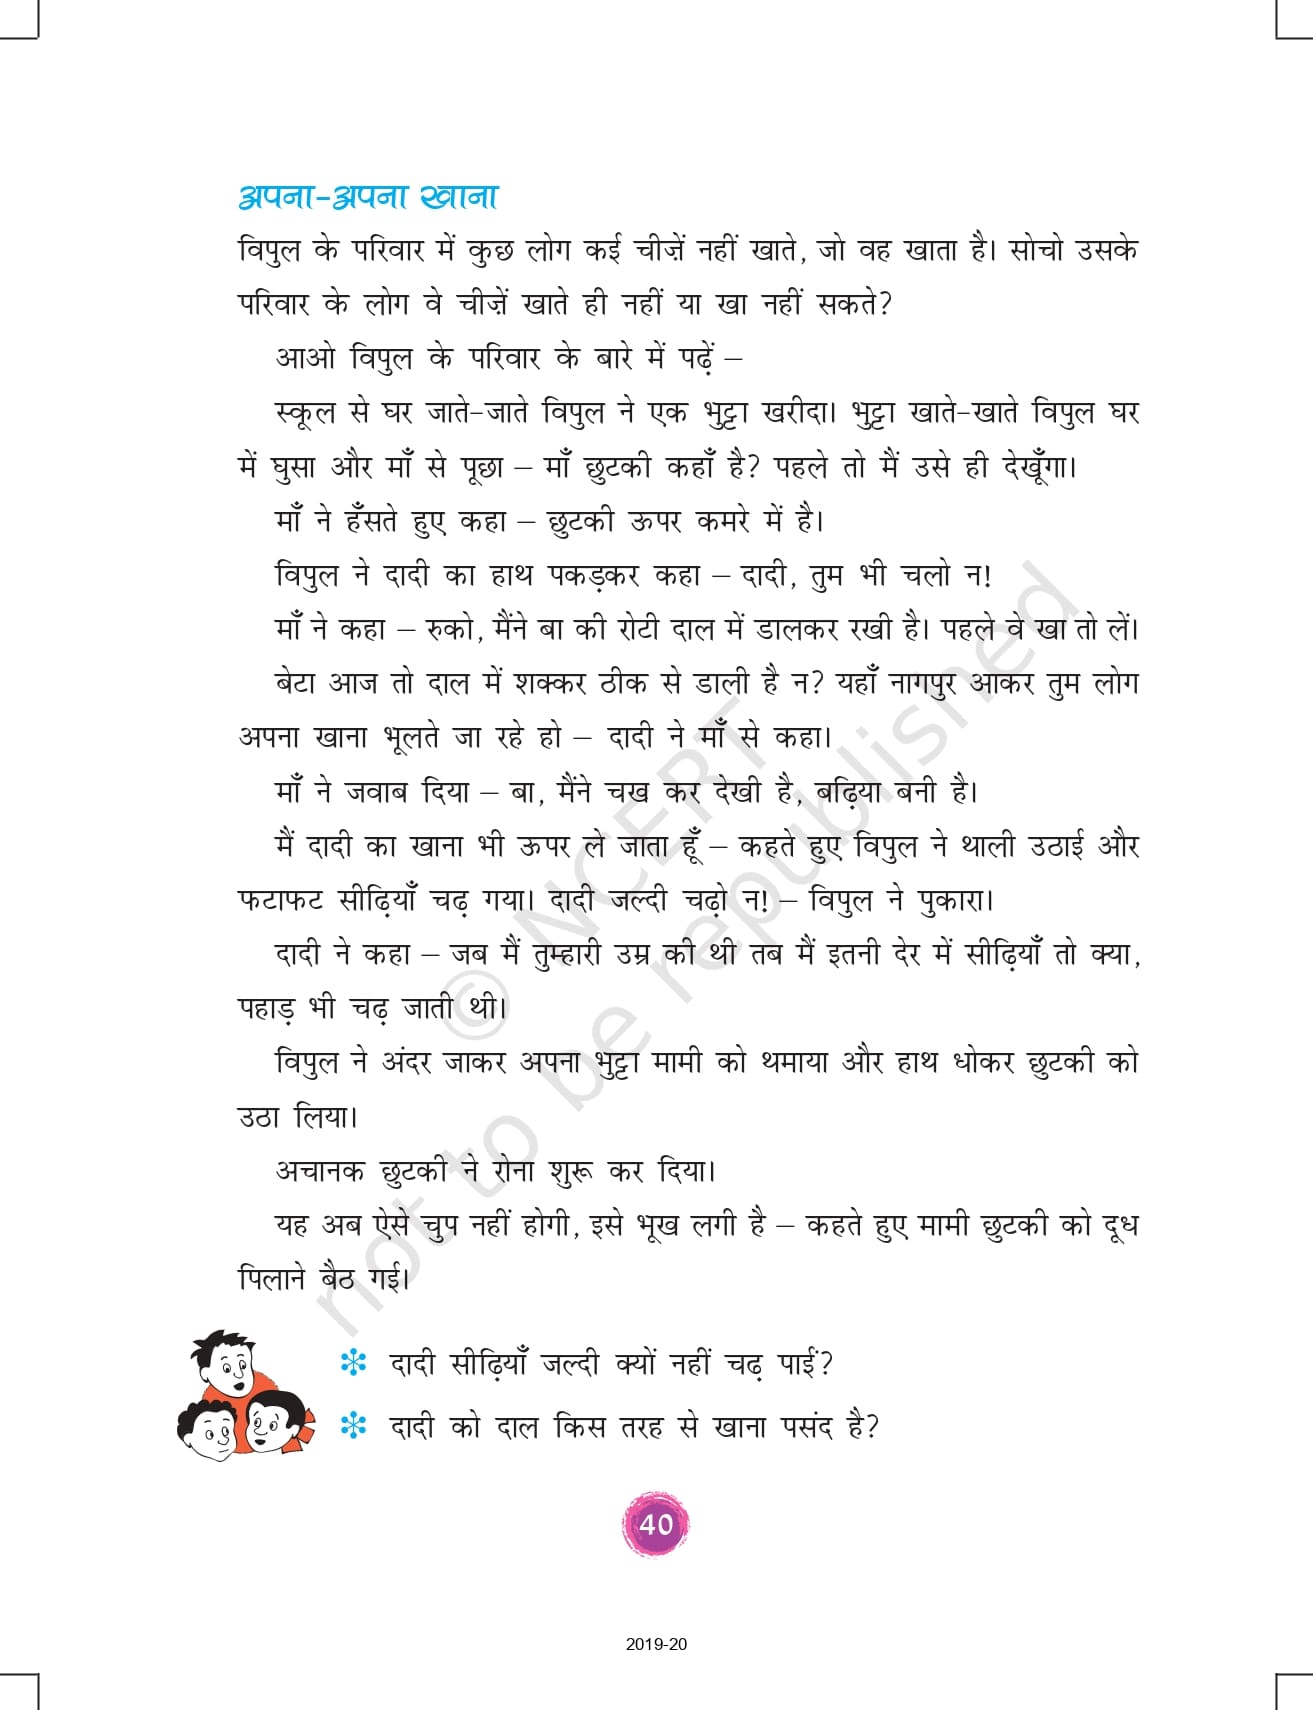 अपना-अपना खाना
विपुल के परिवार में कुछ लोग कई चीज़ें नहीं खाते, जो वह खाता है। सोचो उसके
परिवार के लोग वे चीज़ें खाते ही नहीं या खा नहीं सकते?
आओ विपुल के परिवार के बारे में पढ़ें –
स्कूल से घर जाते-जाते विपुल ने एक भुट्टा खरीदा। भुट्टा खाते-खाते विपुल घर
में घुसा और माँ से पूछा – माँ छुटकी कहाँ है? पहले तो मैं उसे ही देखूँगा।
माँ ने हँसते हुए कहा – छुटकी ऊपर कमरे में है।
विपुल ने दादी का हाथ पकड़कर कहा – दादी, तुम भी चलो न!
माँ ने कहा – रुको, मैंने बा की रोटी दाल में डालकर रखी है। पहले वे खा तो लें।
बेटा आज तो दाल में शक्कर ठीक से डाली है न? यहाँ नागपुर आकर तुम लोग
अपना खाना भूलते जा रहे हो – दादी ने माँ से कहा।
माँ ने जवाब दिया – बा, मैंने चख कर देखी है, बढ़िया बनी है।
मैं दादी का खाना भी ऊपर ले जाता हूँ – कहते हुए विपुल ने थाली उठाई और
फटाफट सीढ़ियाँ चढ़ गया। दादी जल्दी चढ़ो न! – विपुल ने पुकारा।
दादी ने कहा – जब मैं तुम्हारी उम्र की थी तब मैं इतनी देर में सीढ़ियाँ तो क्या,
पहाड़ भी चढ़ जाती थी।
विपुल ने अंदर जाकर अपना भुट्टा मामी को थमाया और हाथ धोकर छुटकी को
उठा लिया।
अचानक छुटकी ने रोना शुरू कर दिया।
यह अब ऐसे चुप नहीं होगी, इसे भूख लगी है – कहते हुए मामी छुटकी को दूध
पिलाने बैठ गई।
दादी सीढ़ियाँ जल्दी क्यों नहीं चढ़ पाईं?
दादी को दाल किस तरह से खाना पसंद है?
40
2019-20
© NCERT
not to be republished